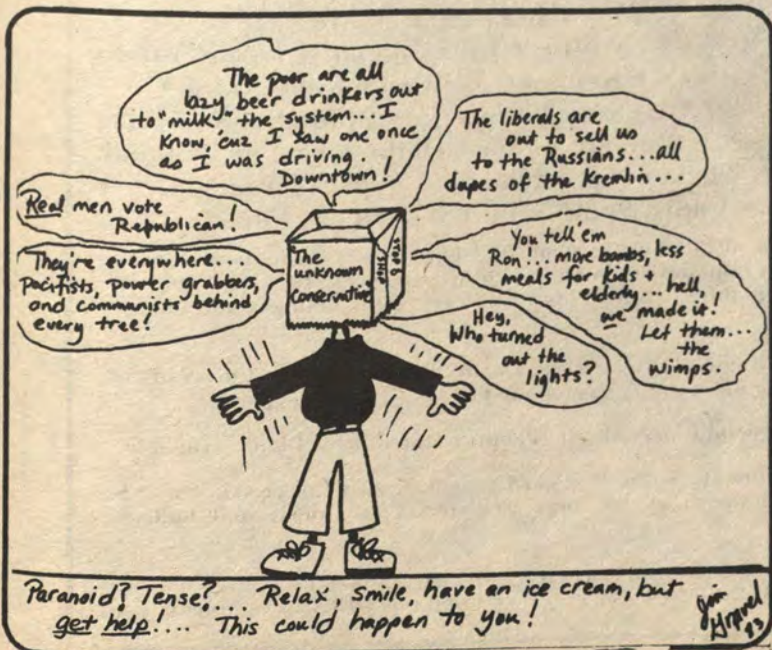 The poor are all
lazy beer drinkers out
to "milk" the system... I
know, 'cuz I saw one once
as I was driving.
Downtown!
The liberals are
out to sell us
to the Russians...all
dupes of the Kremlin...
Real men vote
Republican!
They're everywhere...
pacifists, power grabbers,
and communists behind
every tree!
The
unknown
Conservative
You tell 'em
Ron!... more bombs, less
meals for kids +
elderly... hell,
we made it!
Let them...
the
wimps.
Hey,
Who turned
out the
lights?
Paranoid? Tense?... Relax, smile, have an ice cream, but
get help!... This could happen to you!
Jim
83